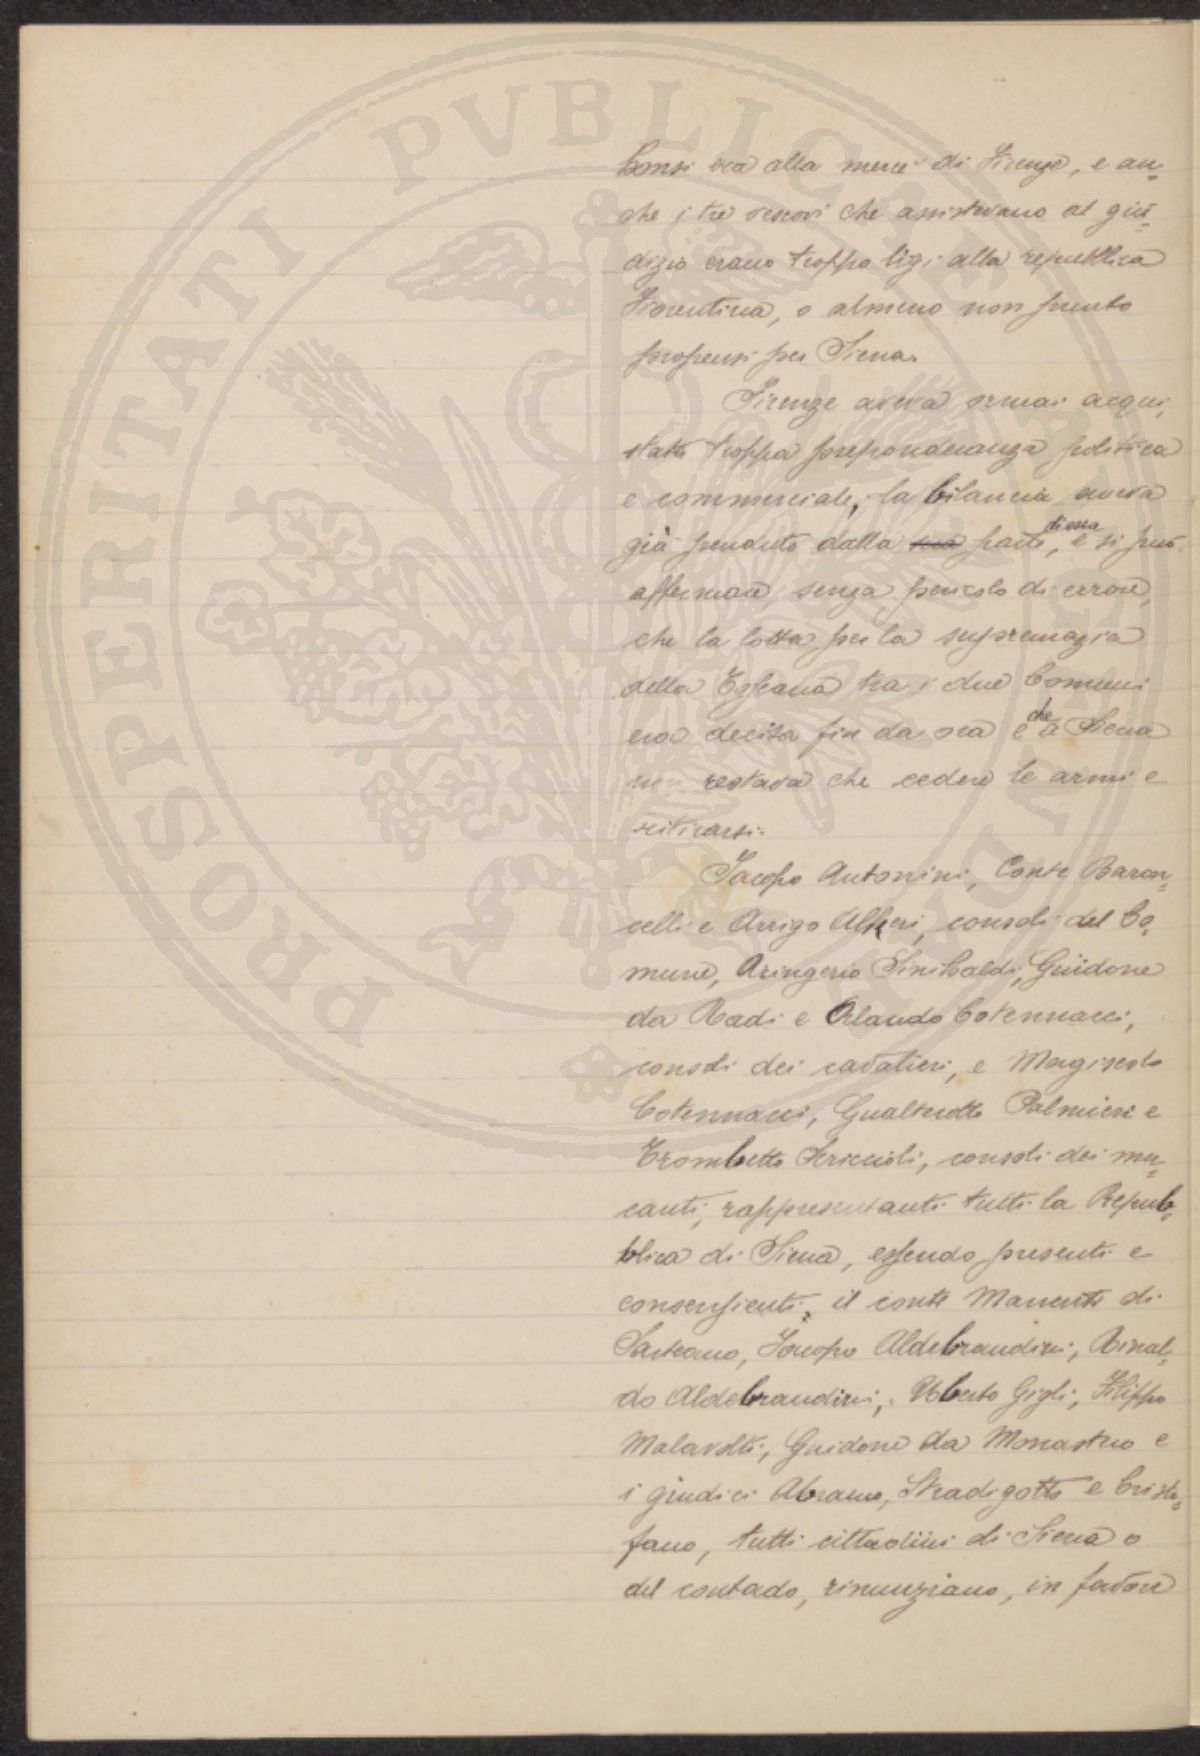 bonsi era alla mercè di Firenze, e an-
che i tre vescovi che assistevano al giu-
dizio erano troppo ligi alla repubblica
Fiorentina, o almeno non punto
propensi per Siena.
Firenze aveva ormai acqui-
stato troppa preponderanza politica
e commerciale; la bilancia aveva
già penduto dalla sua parte di essa, e si può
affermare, senza pericolo di errore,
che la lotta per la supremazia
della Toscana tra i due Comuni
era decisa fin da ora e che a Siena
non restava che cedere le armi e
ritirarsi.
Iacopo Antonini, Conte Baron-
celli e Arrigo Alferi, consoli del Co-
mune, Aringerio Sinibaldi, Guidone
da Radi e Orlando Cotennacci,
consoli dei cavalieri, e Magiscolo
Cotennacci, Gualterotto Palmieri e
Trombetto Scriccioli, consoli dei mer-
canti, rappresentanti tutti la Repub-
blica di Siena, essendo presenti e
consenzienti, il conte Manente di
Sarteano, Iacopo Aldebrandini, Rinal-
do Aldebrandini, Uberto Gigli, Filippo
Malavolti, Guidone da Monastero e
i giudici Abramo, Stradigotto e Cristo-
fano, tutti cittadini di Siena o
del contado, rinunziano, in favore
PROSPERITATI PVBLICAE